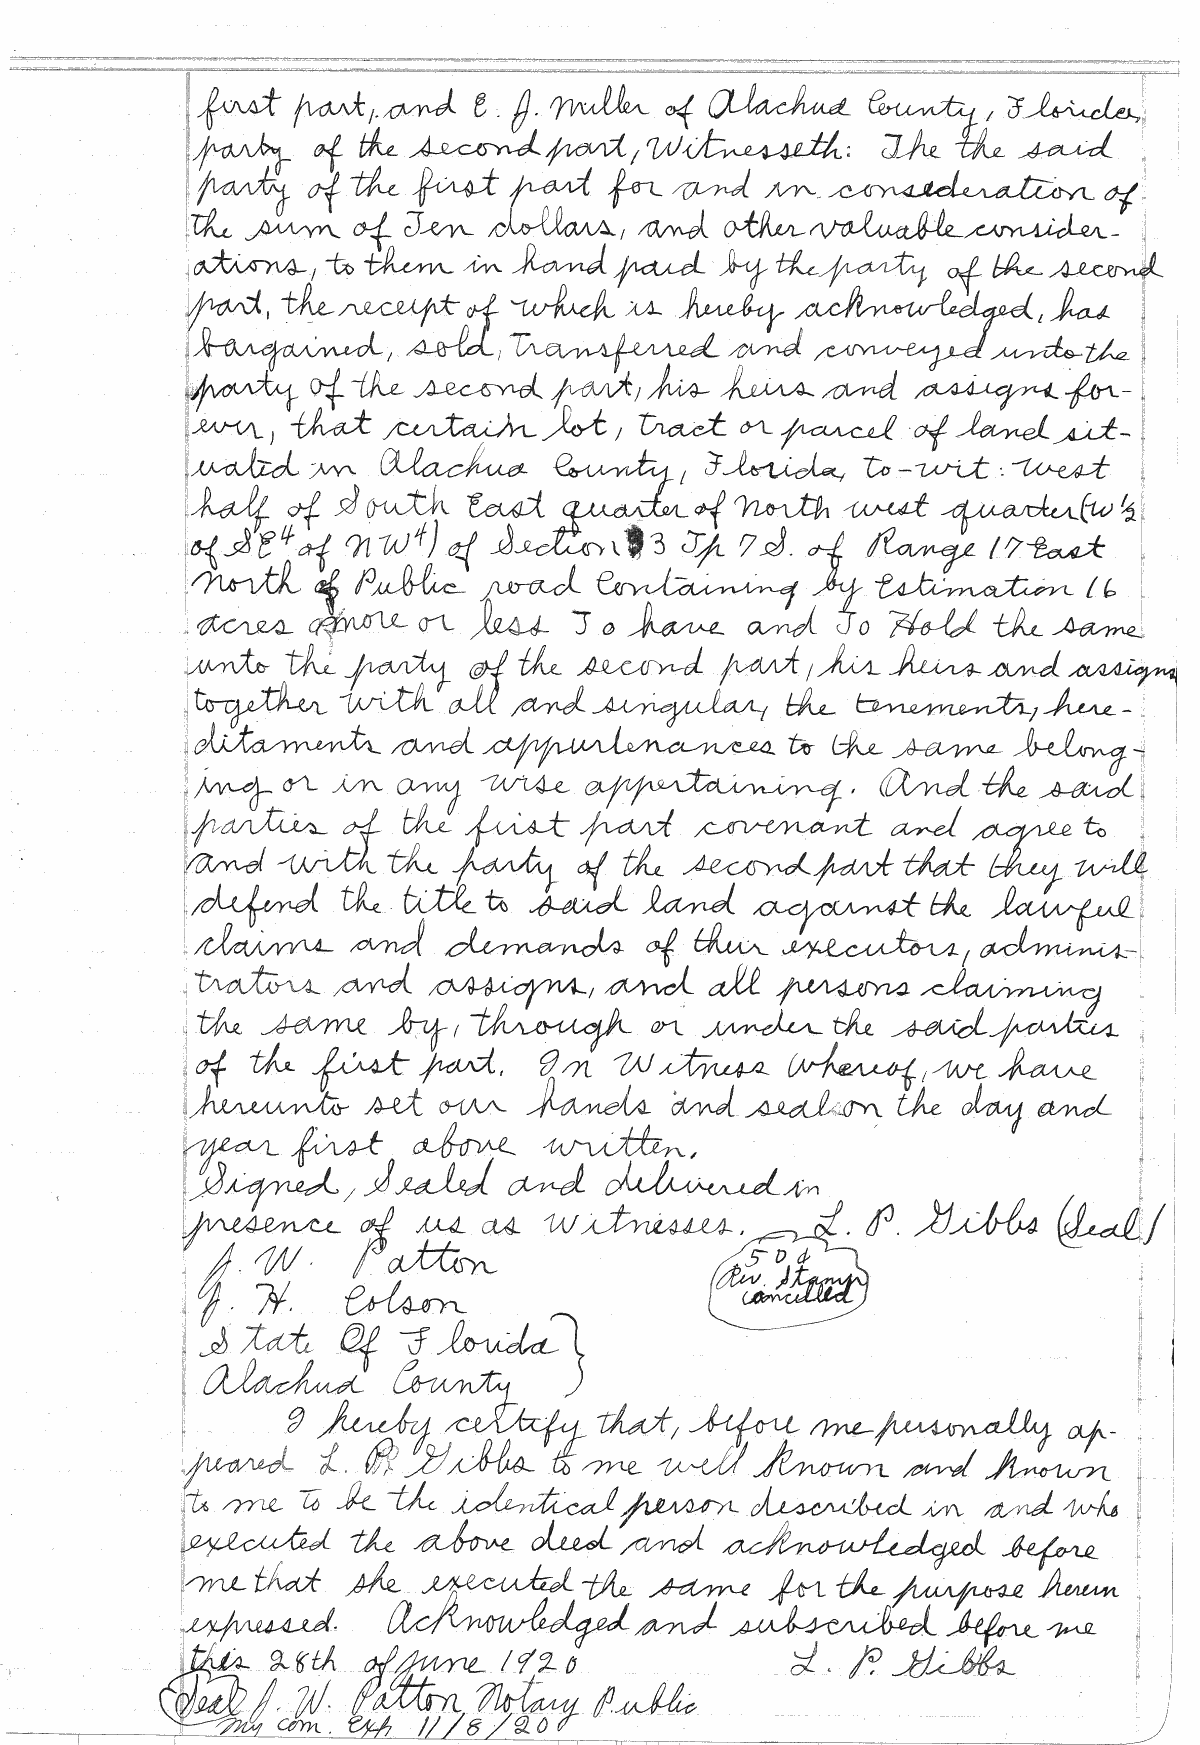 first part, and E. J. Miller of Alachua County, Florida,
party of the second part, Witnesseth: The the said
party of the first part for and in consideration of
the sum of Ten dollars, and other valuable consider-
ations, to them in hand paid by the party of the second
part, the receipt of which is hereby acknowledged, has
bargained, sold, transferred and conveyed unto the
party of the second part, his heirs and assigns for-
ever, that certain lot, tract or parcel of land sit-
uated in Alachua County, Florida, to-wit: West
half of South East quarter of North west quarter (W½
of SE4 of NW4) of Section 3 Tp 7 S. of Range 17 East
North of Public road Containing by Estimation 16
acres more or less To have and To Hold the same
unto the party of the second part, his heirs and assigns
together with all and singular, the tenements, here-
ditaments and appurtenances to the same belong-
ing or in any wise appertaining. And the said
parties of the first part covenant and agree to
and with the party of the second part that they will
defend the title to said land against the lawful
claims and demands of their executors, adminis-
trators and assigns, and all persons claiming
the same by, through or under the said parties
of the first part. In Witness Whereof, we have
hereunto set our hands and seal on the day and
year first above written.
Signed, Sealed and delivered in
presence of us as witnesses. L. P. Gibbs (Seal)
J. W. Patton
50¢
Rev. Stamp
cancelled
J. H. Colson
State Of Florida }
Alachua County
I hereby certify that, before me personally ap-
peared L. P. Gibbs to me well known and known
to me to be the identical person described in and who
executed the above deed and acknowledged before
me that she executed the same for the purpose herein
expressed. Acknowledged and subscribed before me
this 28th of June 1920 L. P. Gibbs
(Seal) J. W. Patton Notary Public
My com. exp 11/8/20